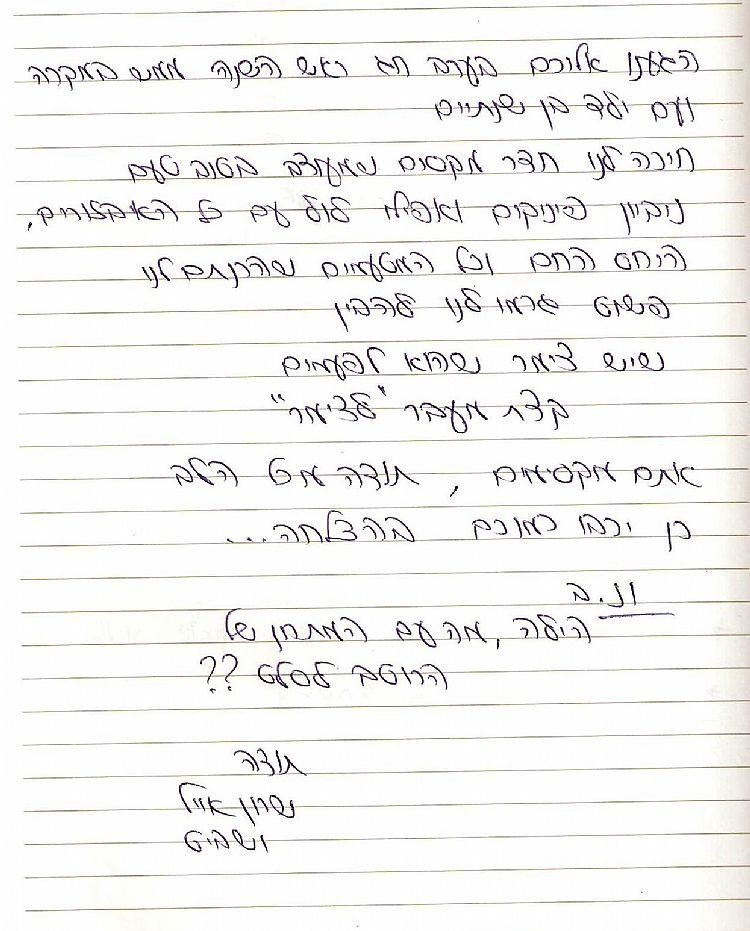 הגענו אליכם בערב חג ראש השנה ממש במקרה
ועם ילד בן שנתיים
חיכה לנו חדר מקסים שמעוצב בטוב טעם
ניביון פינוקים ואפילו לול עם כל האביזרים,
היחס החם וכל המטעמים שהכנתם לנו
פשוט גרמו לנו להבין
שיש צימר שהוא לפעמים
קצת מעבר "לצימר"
אתם מקסימים, תודה מכל הלב
כן ירבו כמוכם בהצלחה...
ונ.ב
הילה, מה עם המתכון של
הרוטב לסלט ??
תודה
שרון אייל
ושביט